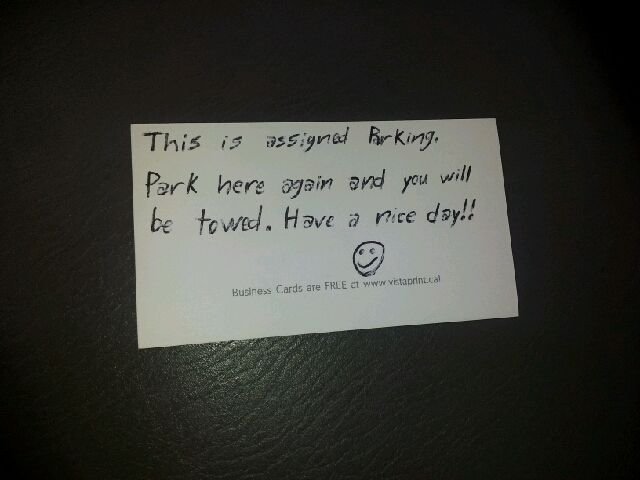 This is assigned Parking.
Park here again and you will
be towed. Have a nice day!!
Business Cards are FREE at www.vistaprint.ca!